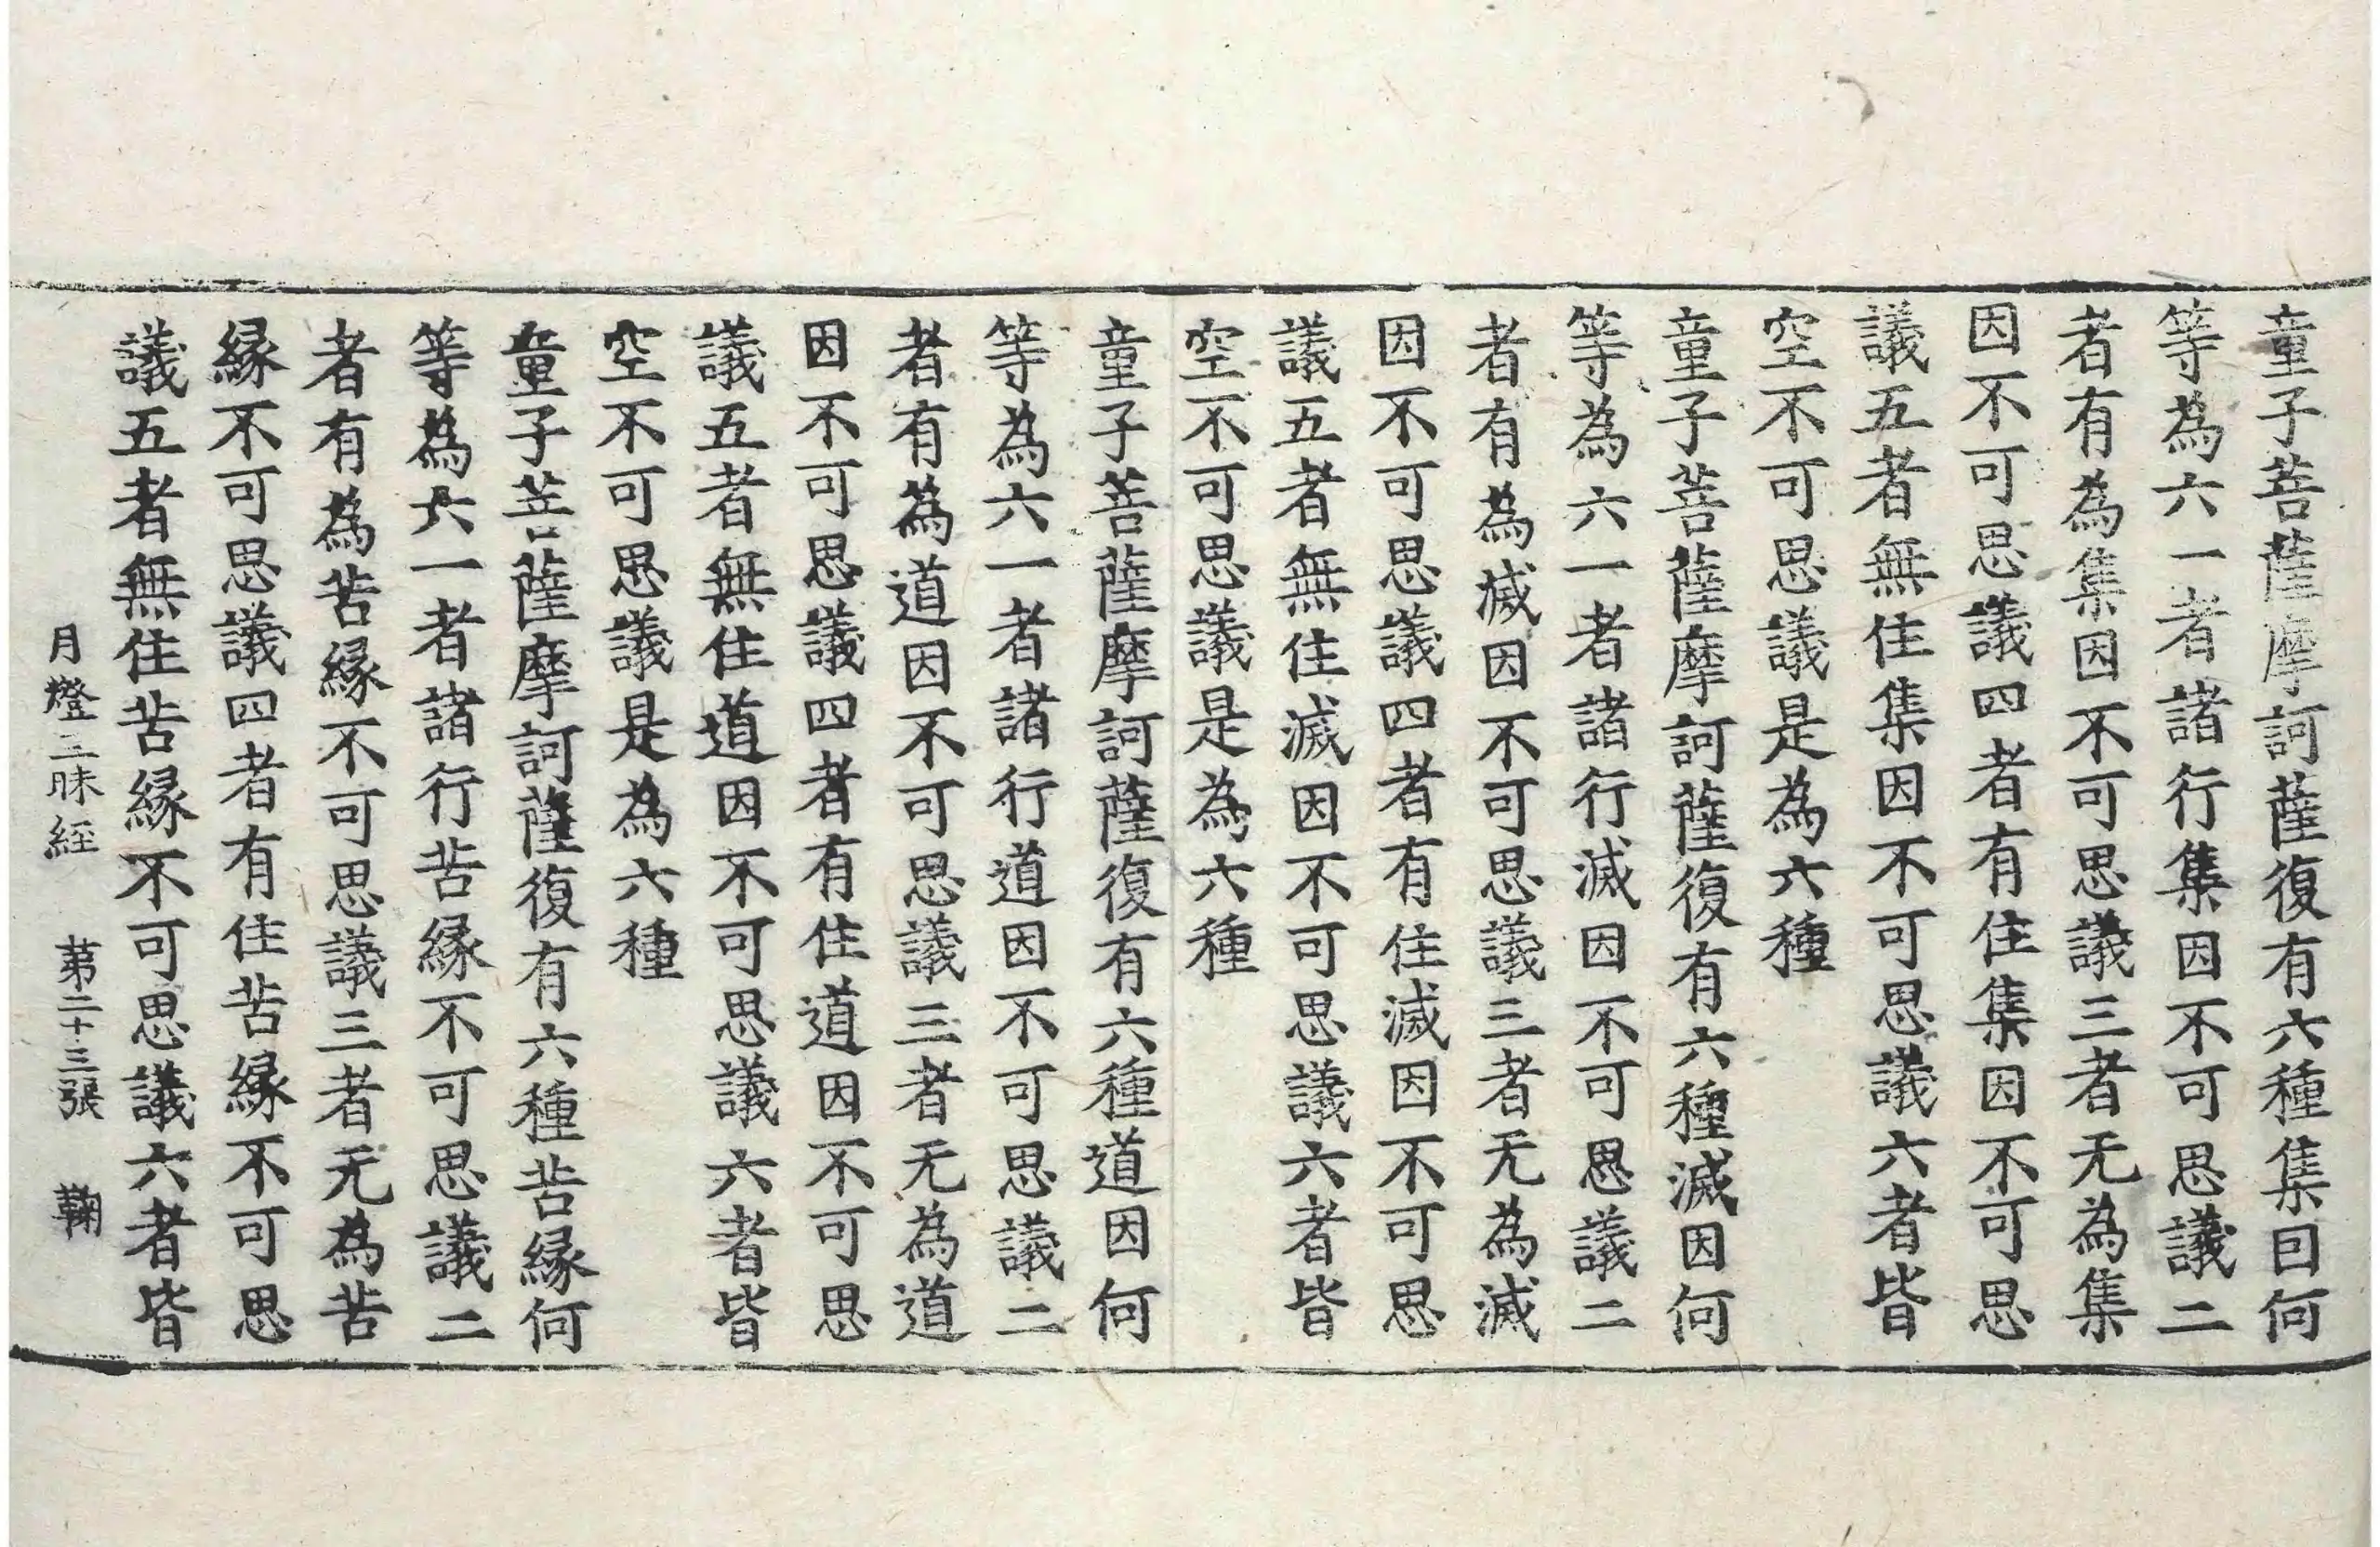 童子菩薩摩訶薩復有六種集因何
等為六一者諸行集因不可思議二
者有為集因不可思議三者无為集
因不可思議四者有住集因不可思
議五者無住集因不可思議六者皆
空不可思議是為六種
童子菩薩摩訶薩復有六種滅因何
等為六一者諸行滅因不可思議二
者有為滅因不可思議三者无為滅
因不可思議四者有住滅因不可思
議五者無住滅因不可思議六者皆
空不可思議是為六種
童子菩薩摩訶薩復有六種道因何
等為六一者諸行道因不可思議二
者有為道因不可思議三者无為道
因不可思議四者有住道因不可思
議五者無住道因不可思議六者皆
空不可思議是為六種
童子菩薩摩訶薩復有六種苦緣何
等為六一者諸行苦緣不可思議二
者有為苦緣不可思議三者无為苦
緣不可思議四者有住苦緣不可思
議五者無住苦緣不可思議六者皆
月燈三昧經 苐二十三張 鞠